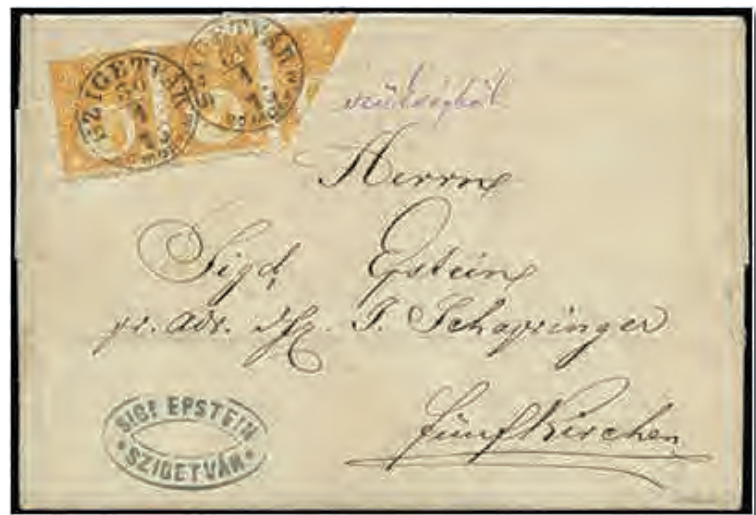 SZIGETVÁR
30
1
SZIGETVÁR
30
1
szükségből
Herrn
Sigd. Epstein
pr. adr. J. Schapringer
Fünfkirchen
SIGD EPSTEIN
SZIGETVÁR